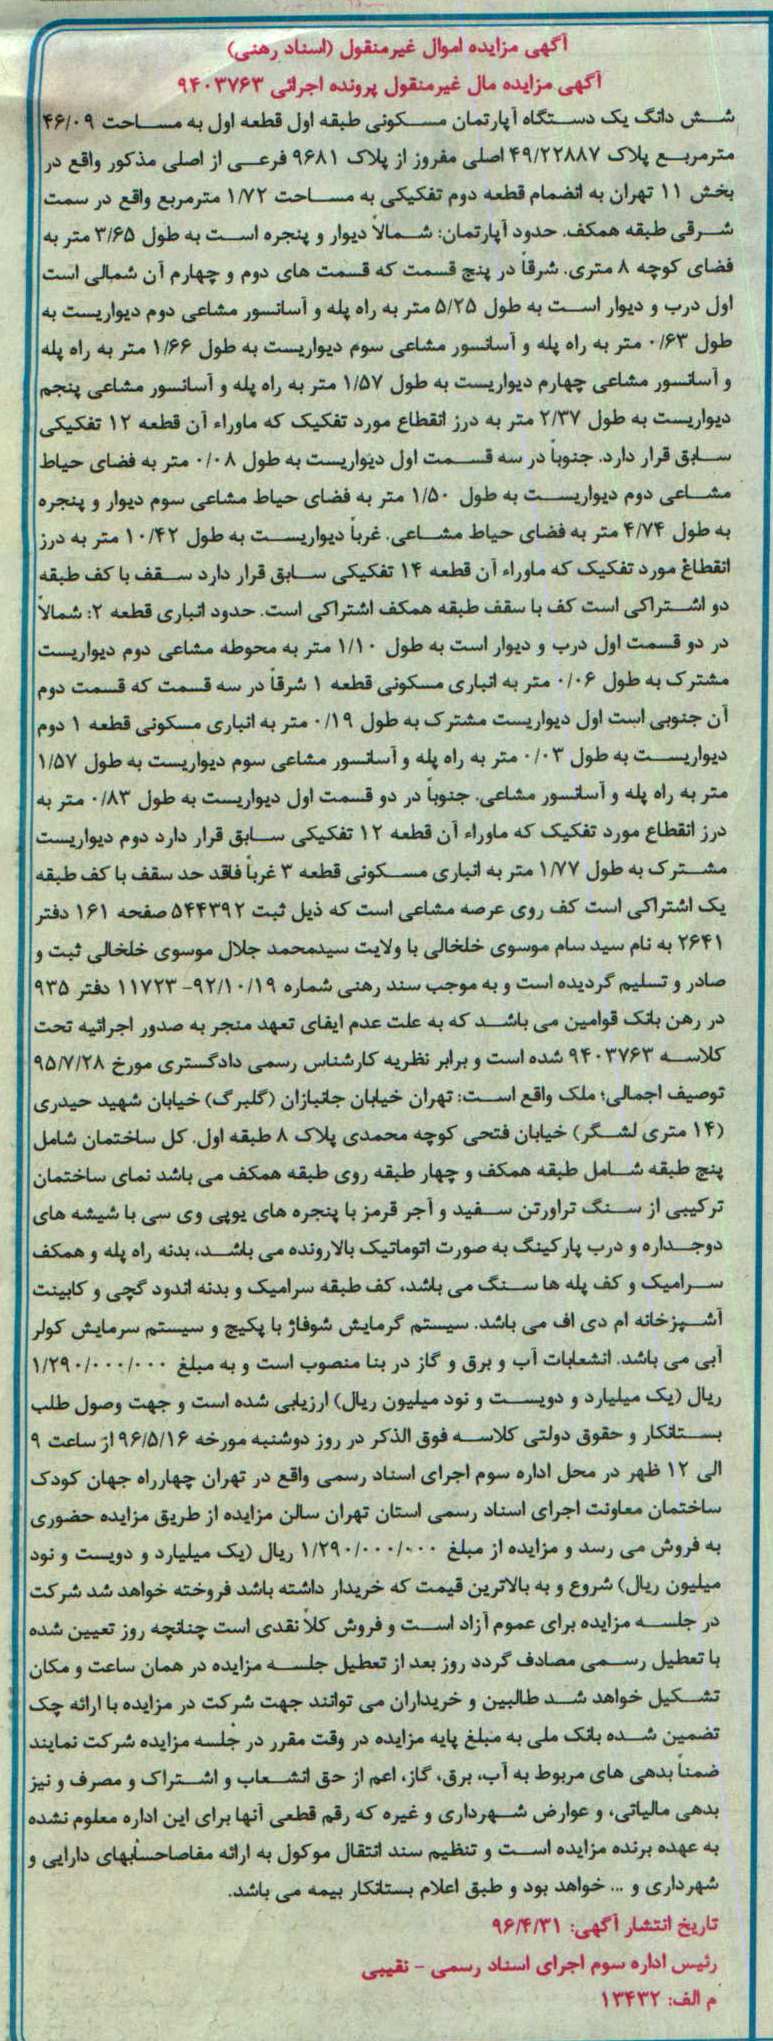 آگهی مزایده اموال غیرمنقول (اسناد رهنی)
آگهی مزایده مال غیرمنقول پرونده اجرائی ۹۴۰۳۷۶۳
شش دانگ یک دستگاه آپارتمان مسکونی طبقه اول قطعه اول به مساحت ۴۶/۰۹
مترمربع پلاک ۴۹/۲۲۸۸۷ اصلی مفروز از پلاک ۹۶۸۱ فرعی از اصلی مذکور واقع در
بخش ۱۱ تهران به انضمام قطعه دوم تفکیکی به مساحت ۱/۷۲ مترمربع واقع در سمت
شرقی طبقه همکف. حدود آپارتمان: شمالاً دیوار و پنجره است به طول ۳/۶۵ متر به
فضای کوچه ۸ متری. شرقاً در پنج قسمت که قسمت های دوم و چهارم آن شمالی است
اول درب و دیوار است به طول ۵/۲۵ متر به راه پله و آسانسور مشاعی دوم دیواریست به
طول ۰/۶۳ متر به راه پله و آسانسور مشاعی سوم دیواریست به طول ۱/۶۶ متر به راه پله
و آسانسور مشاعی چهارم دیواریست به طول ۱/۵۷ متر به راه پله و آسانسور مشاعی پنجم
دیواریست به طول ۲/۳۷ متر به درز انقطاع مورد تفکیک که ماوراء آن قطعه ۱۲ تفکیکی
سابق قرار دارد. جنوباً در سه قسمت اول دیواریست به طول ۰/۰۸ متر به فضای حیاط
مشاعی دوم دیواریست به طول ۱/۵۰ متر به فضای حیاط مشاعی سوم دیوار و پنجره
به طول ۴/۷۴ متر به فضای حیاط مشاعی. غرباً دیواریست به طول ۱۰/۴۲ متر به درز
انقطاغ مورد تفکیک که ماوراء آن قطعه ۱۴ تفکیکی سابق قرار دارد سقف با کف طبقه
دو اشتراکی است کف با سقف طبقه همکف اشتراکی است. حدود انباری قطعه ۲: شمالاً
در دو قسمت اول درب و دیوار است به طول ۱/۱۰ متر به محوطه مشاعی دوم دیواریست
مشترک به طول ۰/۰۶ متر به انباری مسکونی قطعه ۱ شرقاً در سه قسمت که قسمت دوم
آن جنوبی است اول دیواریست مشترک به طول ۰/۱۹ متر به انباری مسکونی قطعه ۱ دوم
دیواریست به طول ۰/۰۳ متر به راه پله و آسانسور مشاعی سوم دیواریست به طول ۱/۵۷
متر به راه پله و آسانسور مشاعی. جنوباً در دو قسمت اول دیواریست به طول ۰/۸۳ متر به
درز انقطاع مورد تفکیک که ماوراء آن قطعه ۱۲ تفکیکی سابق قرار دارد دوم دیواریست
مشترک به طول ۱/۷۷ متر به انباری مسکونی قطعه ۳ غرباً فاقد حد سقف با کف طبقه
یک اشتراکی است کف روی عرصه مشاعی است که ذیل ثبت ۵۴۴۳۹۲ صفحه ۱۶۱ دفتر
۲۶۴۱ به نام سید سام موسوی خلخالی با ولایت سیدمحمد جلال موسوی خلخالی ثبت و
صادر و تسلیم گردیده است و به موجب سند رهنی شماره ۹۲/۱۰/۱۹- ۱۱۷۲۳ دفتر ۹۳۵
در رهن بانک قوامین می باشد که به علت عدم ایفای تعهد منجر به صدور اجرائیه تحت
کلاسه ۹۴۰۳۷۶۳ شده است و برابر نظریه کارشناس رسمی دادگستری مورخ ۹۵/۷/۲۸
توصیف اجمالی؛ ملک واقع است: تهران خیابان جانبازان (گلبرگ) خیابان شهید حیدری
(۱۴ متری لشگر) خیابان فتحی کوچه محمدی پلاک ۸ طبقه اول. کل ساختمان شامل
پنج طبقه شامل طبقه همکف و چهار طبقه روی طبقه همکف می باشد نمای ساختمان
ترکیبی از سنگ تراورتن سفید و آجر قرمز با پنجره های یوپی وی سی با شیشه های
دوجداره و درب پارکینگ به صورت اتوماتیک بالارونده می باشد، بدنه راه پله و همکف
سرامیک و کف پله ها سنگ می باشد، کف طبقه سرامیک و بدنه اندود گچی و کابینت
آشپزخانه ام دی اف می باشد. سیستم گرمایش شوفاژ با پکیج و سیستم سرمایش کولر
آبی می باشد. انشعابات آب و برق و گاز در بنا منصوب است و به مبلغ ۱/۲۹۰/۰۰۰/۰۰۰
ریال (یک میلیارد و دویست و نود میلیون ریال) ارزیابی شده است و جهت وصول طلب
بستانکار و حقوق دولتی کلاسه فوق الذکر در روز دوشنبه مورخه ۹۶/۵/۱۶ از ساعت ۹
الی ۱۲ ظهر در محل اداره سوم اجرای اسناد رسمی واقع در تهران چهارراه جهان کودک
ساختمان معاونت اجرای اسناد رسمی استان تهران سالن مزایده از طریق مزایده حضوری
به فروش می رسد و مزایده از مبلغ ۱/۲۹۰/۰۰۰/۰۰۰ ریال (یک میلیارد و دویست و نود
میلیون ریال) شروع و به بالاترین قیمت که خریدار داشته باشد فروخته خواهد شد شرکت
در جلسه مزایده برای عموم آزاد است و فروش کلاً نقدی است چنانچه روز تعیین شده
با تعطیل رسمی مصادف گردد روز بعد از تعطیل جلسه مزایده در همان ساعت و مکان
تشکیل خواهد شد طالبین و خریداران می توانند جهت شرکت در مزایده با ارائه چک
تضمین شده بانک ملی به مبلغ پایه مزایده در وقت مقرر در جلسه مزایده شرکت نمایند
ضمناً بدهی های مربوط به آب، برق، گاز، اعم از حق انشعاب و اشتراک و مصرف و نیز
بدهی مالیاتی، و عوارض شهرداری و غیره که رقم قطعی آنها برای این اداره معلوم نشده
به عهده برنده مزایده است و تنظیم سند انتقال موکول به ارائه مفاصاحسابهای دارایی و
شهرداری و ... خواهد بود و طبق اعلام بستانکار بیمه می باشد.
تاریخ انتشار آگهی: ۹۶/۴/۳۱
رئیس اداره سوم اجرای اسناد رسمی - نقیبی
م الف: ۱۳۴۳۲